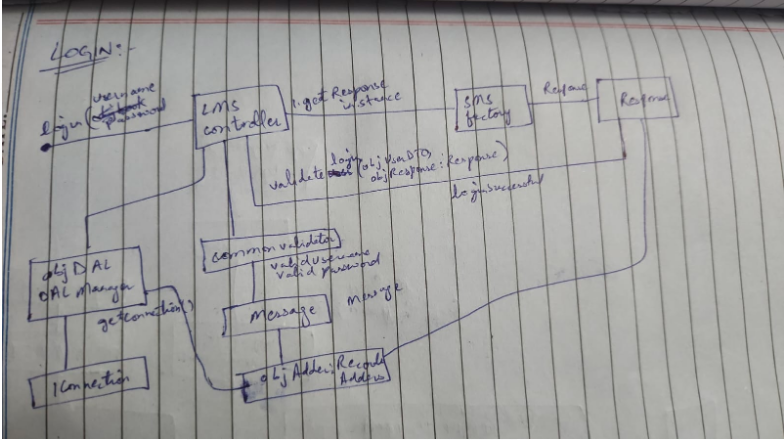 LOGIN:-
login (username
password
LMS
controller
1. get Response
instance
SMS
factory
Response
Response
validate login (obj: UserDTO,
objResponse: Response)
loginsuccessful
common validator
valid username
valid password
obj DAL
DAL Manager
getconnection()
Message
Message
IConnection
obj Adder: Records
Adders